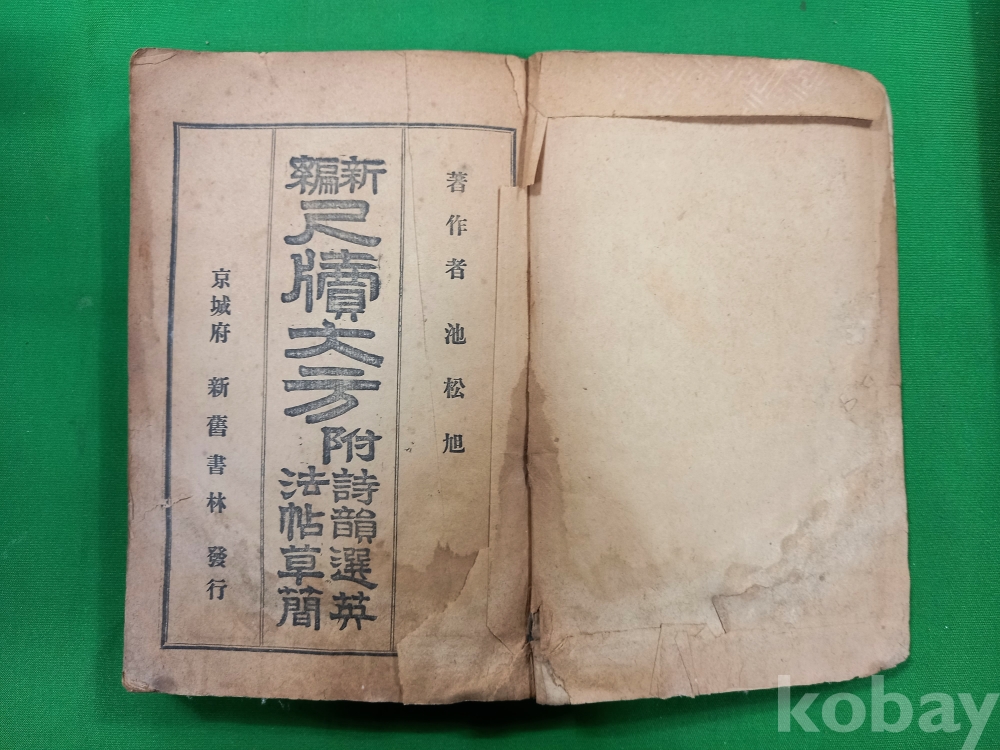 著作者 池松旭
新編
尺牘大方
附
詩韻選英
法帖草簡
京城府 新舊書林 發行
kobay